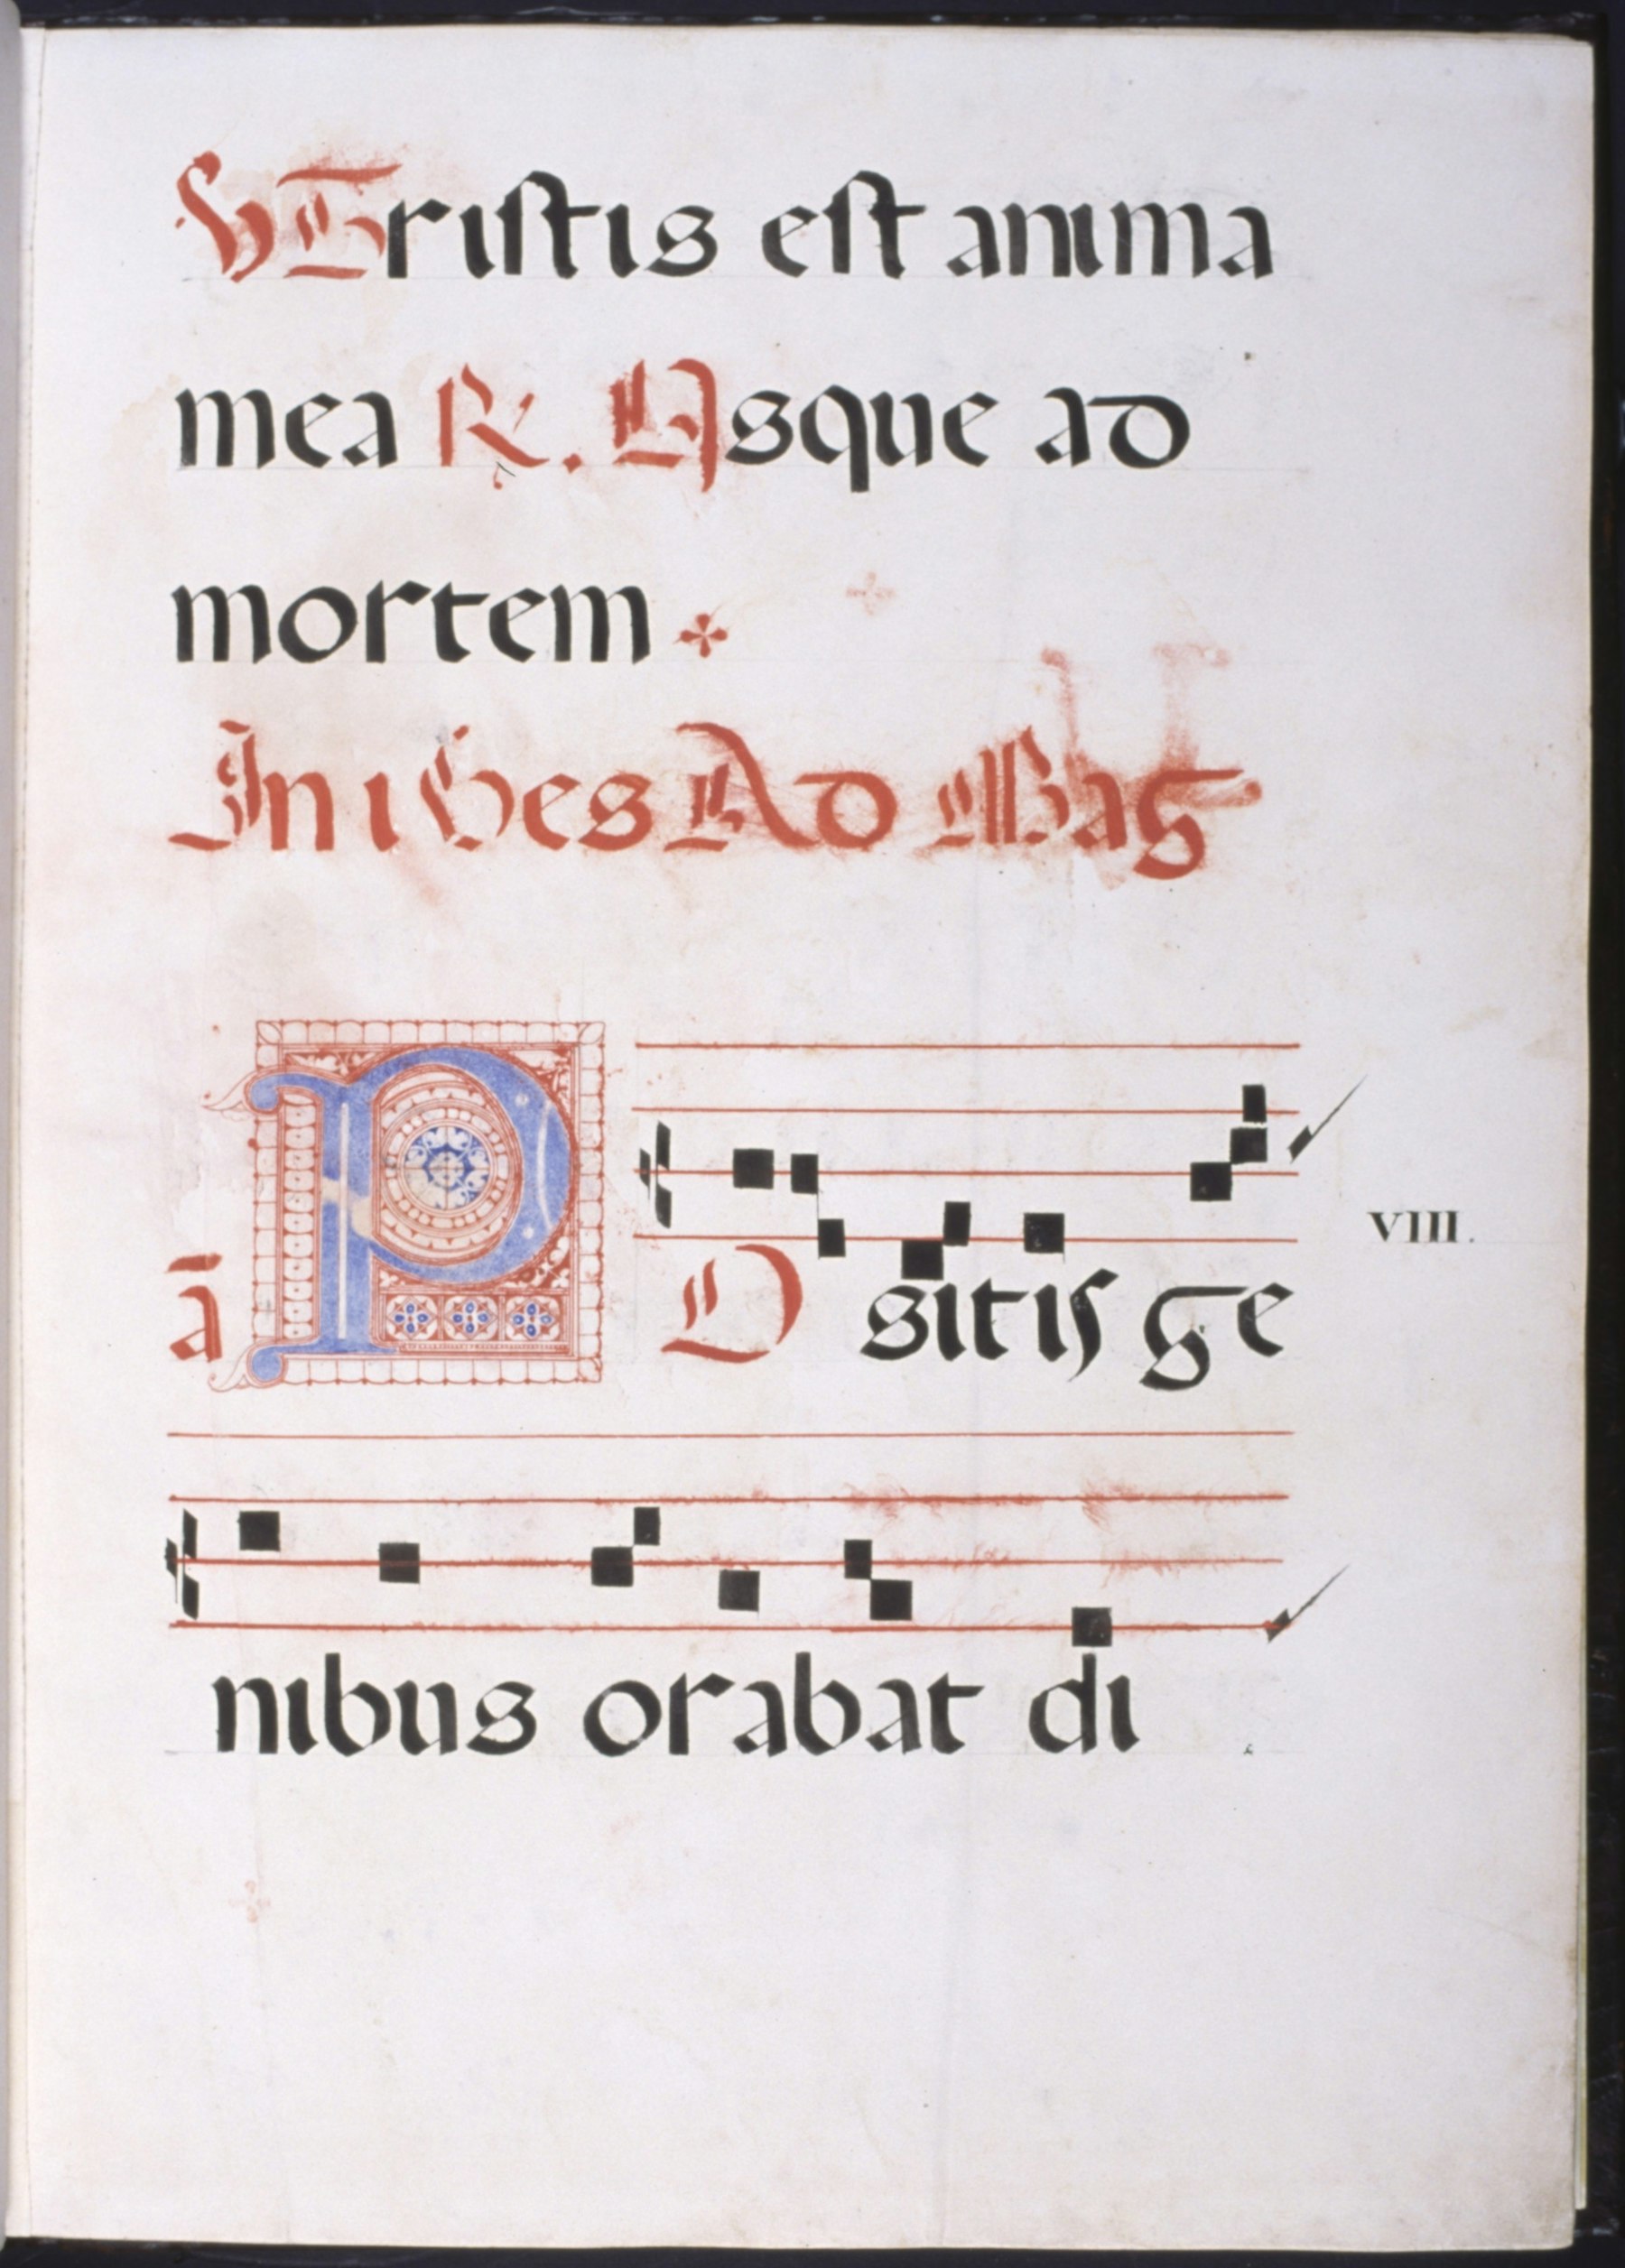 ℣ Triſtis eſt anima
mea ℟. Usque ad
mortem
In i Ves Ad Mag
ā PO sitis ge
VIII.
nibus orabat di